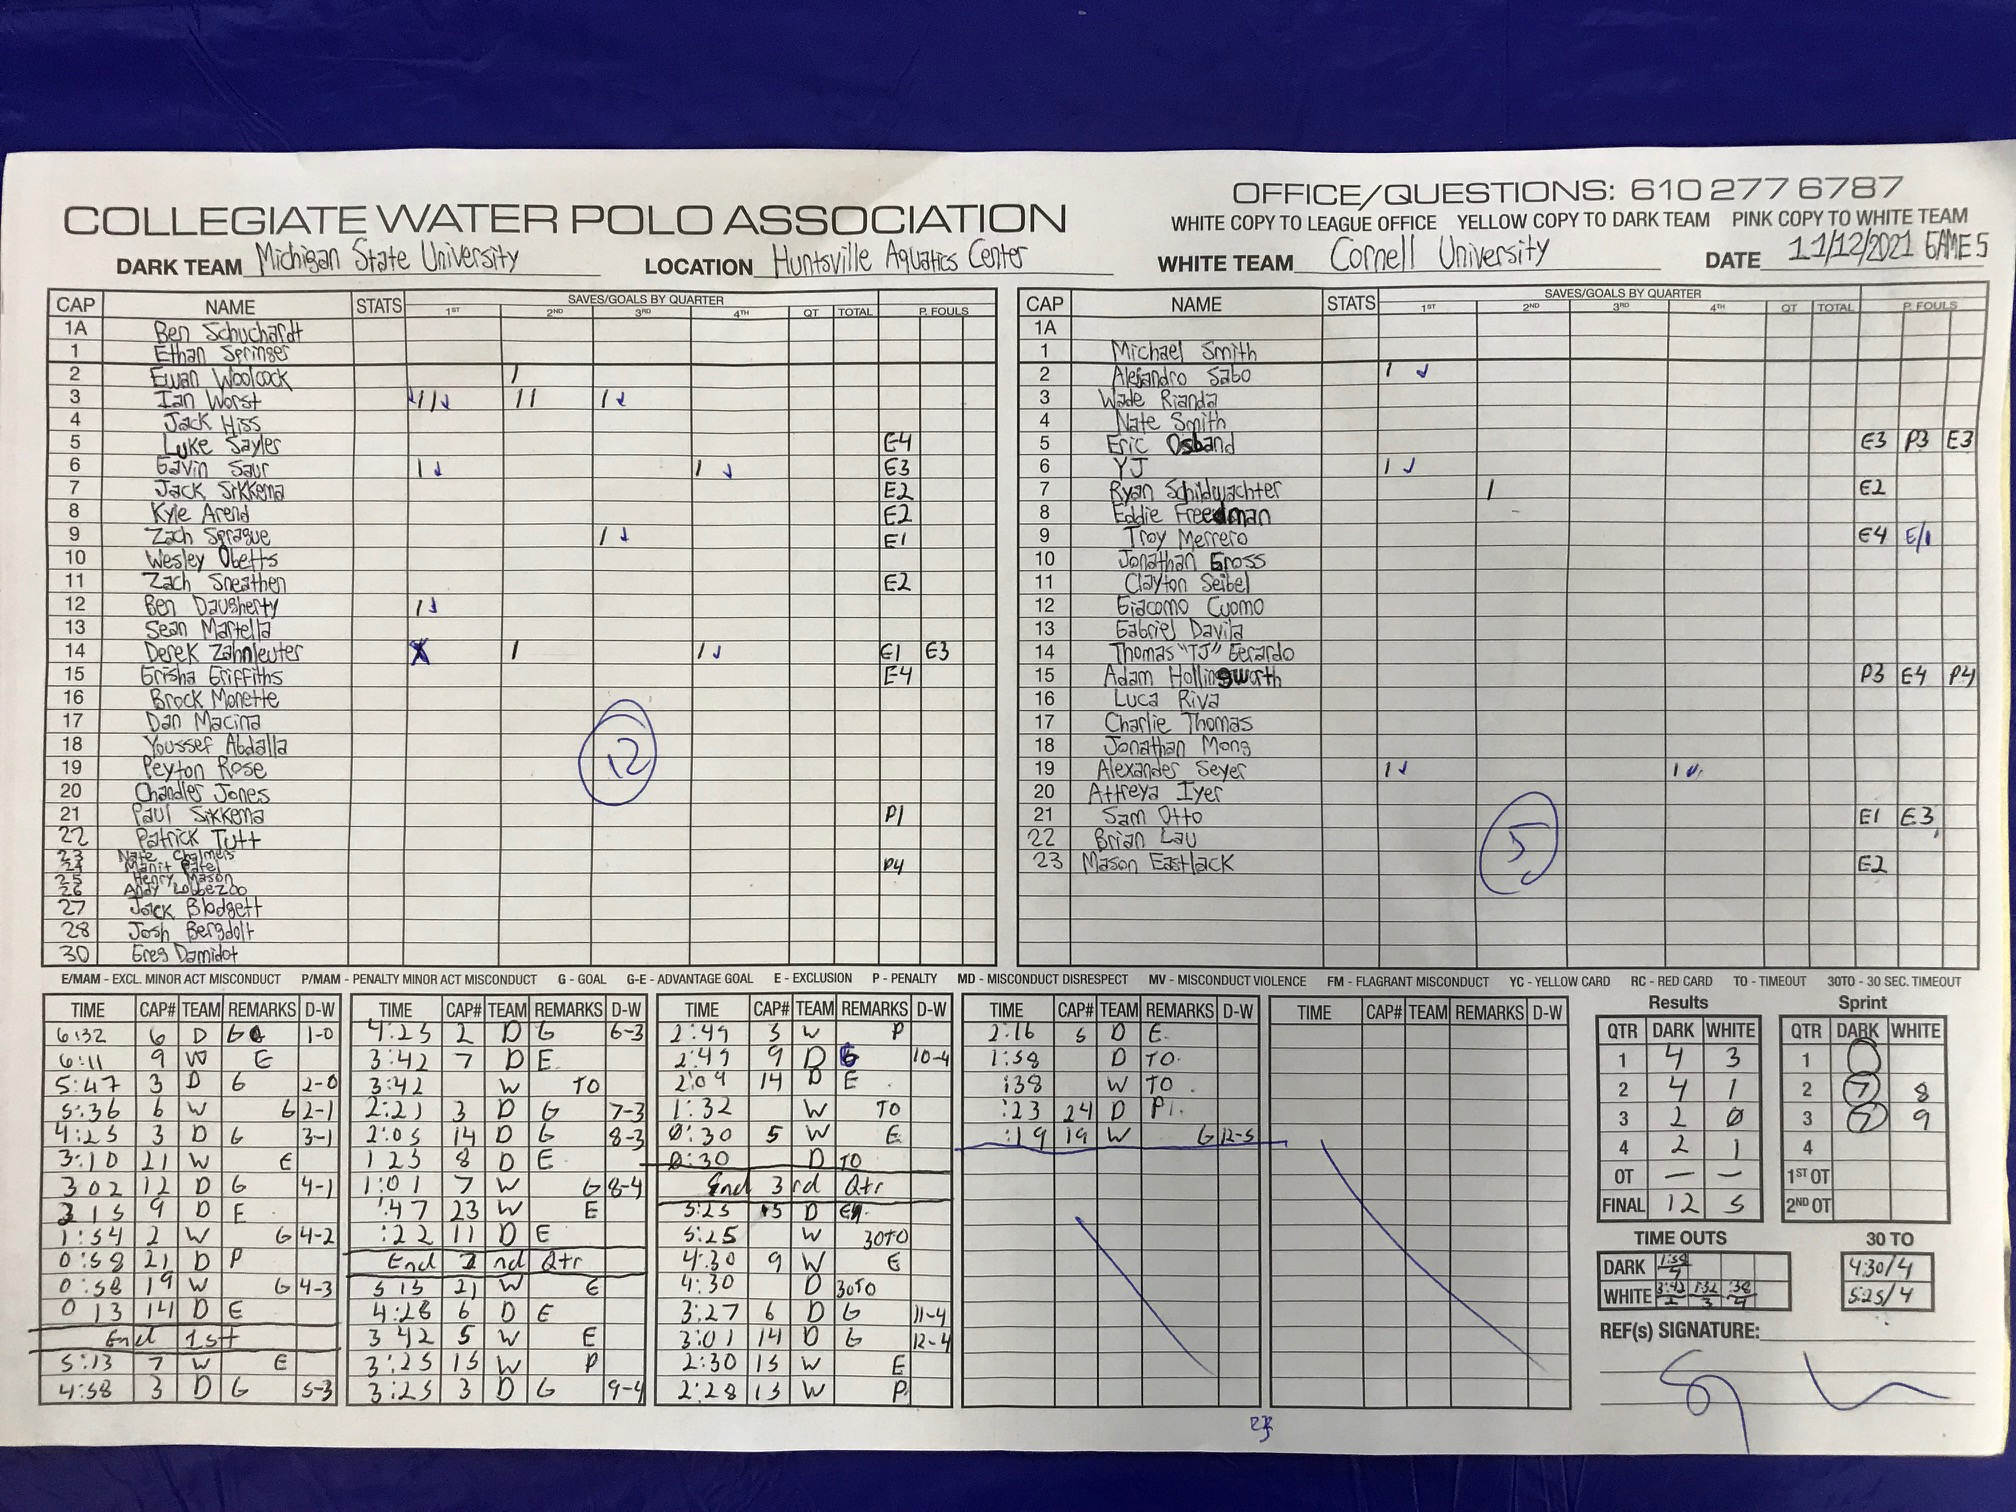 OFFICE/QUESTIONS: 610 277 6787
COLLEGIATE WATER POLO ASSOCIATION
WHITE COPY TO LEAGUE OFFICE YELLOW COPY TO DARK TEAM PINK COPY TO WHITE TEAM
DARK TEAM Michigan State University LOCATION Huntsville Aquatics Center WHITE TEAM Cornell University DATE 11/12/2021 GAME 5
CAP NAME STATS SAVES/GOALS BY QUARTER
1ST 2ND 3RD 4TH QT TOTAL P. FOULS
1A Ben Schuchardt
1 Ethan Springer
2 Ewan Woolcock /
3 Ian Worst // // /
4 Jack Hiss
5 Luke Sayler E4
6 Gavin Saur / / E3
7 Jack Sikkema E2
8 Kyle Arend E2
9 Zach Sprague / E1
10 Wesley Obetts
11 Zach Sneathen E2
12 Ben Daugherty /
13 Sean Martella
14 Derek Zahnleuter X / / E1 E3
15 Grisha Griffiths E4
16 Brock Monette
17 Dan Macina
18 Youssef Abdalla
19 Peyton Rose
20 Chandler Jones
21 Paul Sikkema P1
22 Patrick Tutt
23 Nate Chalmers
24 Manit Patel P4
25 Henry Mason
26 Andy Lobbezoo
27 Jack Blodgett
28 Josh Bergdolt
30 Greg Damidot
12
CAP NAME STATS SAVES/GOALS BY QUARTER
1ST 2ND 3RD 4TH QT TOTAL P. FOULS
1A
1 Michael Smith
2 Alejandro Sabo /
3 Wade Rianda
4 Nate Smith
5 Eric Osband E3 P3 E3
6 YJ /
7 Ryan Schildwachter / E2
8 Eddie Freedman
9 Troy Merrero E4 E/1
10 Jonathan Gross
11 Clayton Seibel
12 Giacomo Cuomo
13 Gabriel Davila
14 Thomas "TJ" Gerardo
15 Adam Hollingsworth P3 E4 P4
16 Luca Riva
17 Charlie Thomas
18 Jonathan Mong
19 Alexander Seyer / /
20 Atreya Iyer
21 Sam Otto E1 E3
22 Brian Lau
23 Mason Eastlack E2
5
E/MAM - EXCL. MINOR ACT MISCONDUCT P/MAM - PENALTY MINOR ACT MISCONDUCT G - GOAL G-E - ADVANTAGE GOAL E - EXCLUSION P - PENALTY MD - MISCONDUCT DISRESPECT MV - MISCONDUCT VIOLENCE FM - FLAGRANT MISCONDUCT YC - YELLOW CARD RC - RED CARD TO - TIMEOUT 30TO - 30 SEC. TIMEOUT
TIME CAP# TEAM REMARKS D-W
6:32 6 D G 1-0
6:11 9 W E
5:47 3 D G 2-0
5:36 6 W G 2-1
4:25 3 D G 3-1
3:10 21 W E
3 02 12 D G 4-1
2 15 9 D E
1:54 2 W G 4-2
0:58 21 D P
0:58 19 W G 4-3
0 13 14 D E
End 1st
5:13 7 W E
4:58 3 D G 5-3
TIME CAP# TEAM REMARKS D-W
4:25 2 D G 6-3
3:42 7 D E
3:42 W TO
2:21 3 D G 7-3
2:05 14 D G 8-3
1 23 8 D E
1:01 7 W G 8-4
:47 23 W E
:22 11 D E
End 2nd Qtr
5 15 21 W E
4:28 6 D E
3 42 5 W E
3:25 15 W P
3:25 3 D G 9-4
TIME CAP# TEAM REMARKS D-W
2:49 5 W P
2:49 9 D G 10-4
2:09 14 D E
1:32 W TO
0:30 5 W E
0:30 D TO
End 3rd Qtr
5:25 15 D E
5:25 W 30TO
4:30 9 W E
4:30 D 30TO
3:27 6 D G 11-4
3:01 14 D G 12-4
2:30 15 W E
2:28 15 W P
TIME CAP# TEAM REMARKS D-W
2:16 5 D E
1:58 D TO
:38 W TO
:23 24 D P
:19 19 W G 12-5
TIME CAP# TEAM REMARKS D-W
Results
QTR DARK WHITE
1 4 3
2 4 1
3 2 0
4 2 1
OT — —
FINAL 12 5
Sprint
QTR DARK WHITE
1
2 7 8
3 7 9
4
1ST OT
2ND OT
TIME OUTS
DARK 1:58/4
WHITE 3:42/2 1:32/3 :38/4
30 TO
4:30/4
5:25/4
REF(s) SIGNATURE: